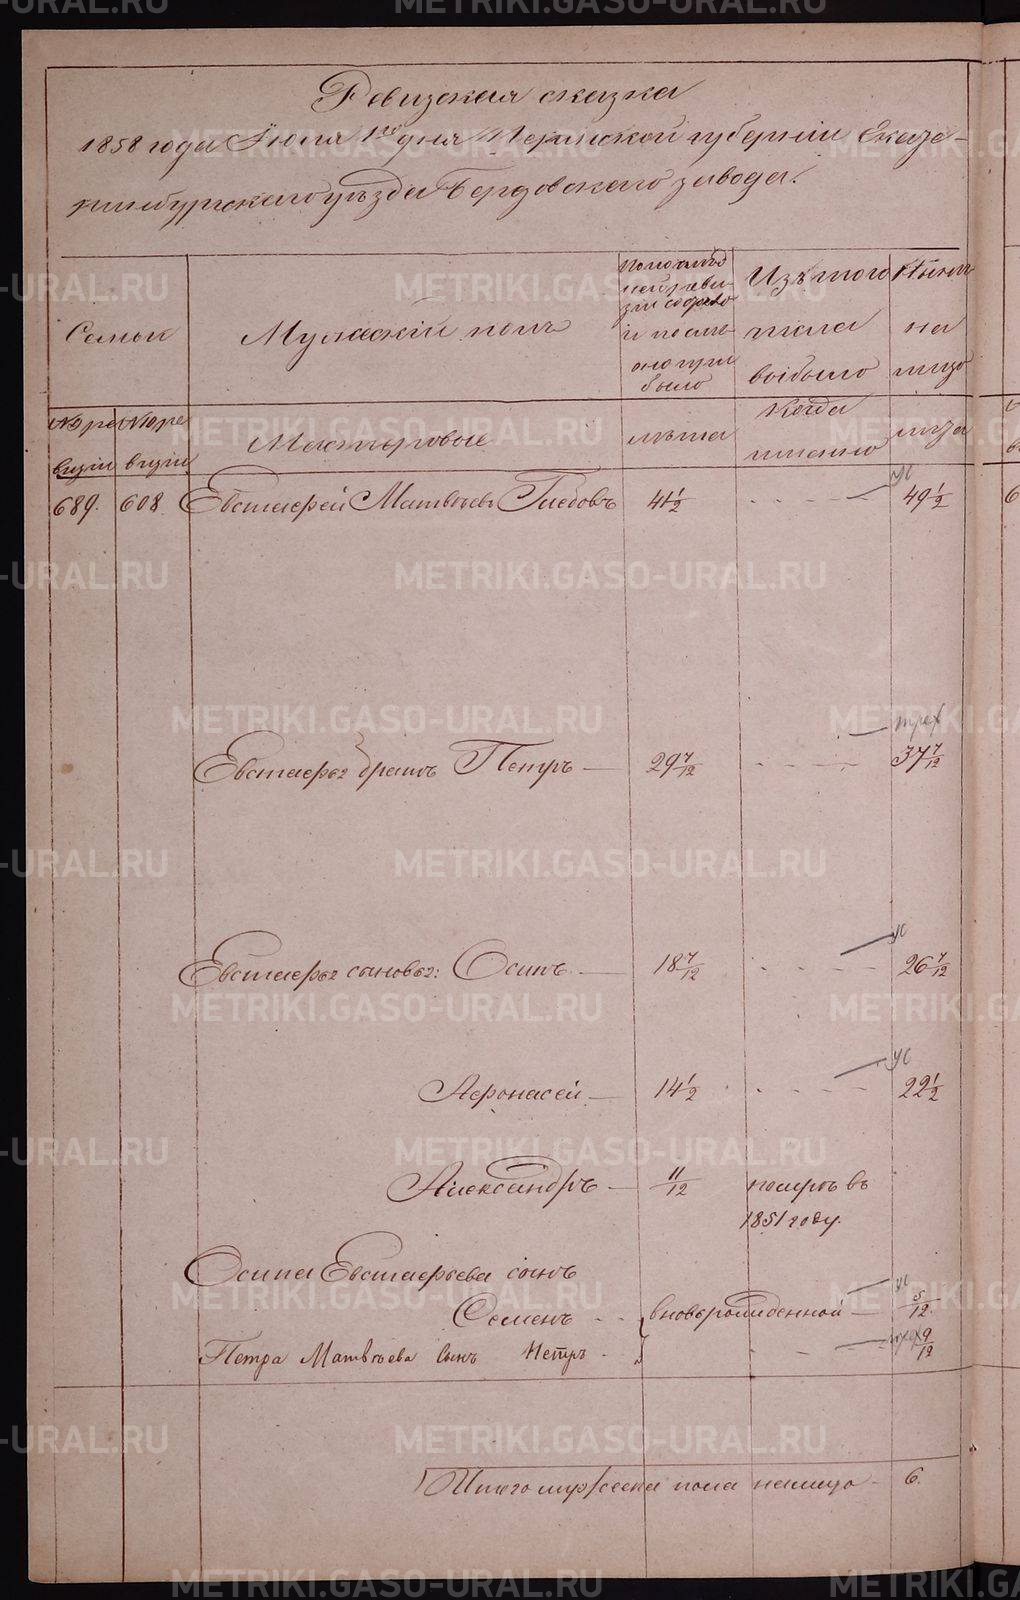 Ревизская сказка
1858 года Июля 1го дня Пермской губернiи Екате-
ринбургскаго уѣзда завода.
Семьи
Мужескiй полъ
По последней ревизiи состояло и после оно прибыло
Изъ того числа выбыло
Ныне на лицо
№ ре визiи
№ ре визiи
Мастеровые
лѣта
Когда именно
лѣта
689. 608 Евстафей Матвѣевъ Глебовъ 41 1/2 ус 49 1/2
Евстафья братъ Петръ 29 7/12 трех 37 7/12
Евстафья сыновья: Осипъ 18 7/12 ус 26 7/12
Афонасей 14 1/2 ус 22 1/2
Александръ 11/12 померъ въ
1851 году.
Осипа Евстафьева сынъ
Семенъ вновьрожденной ус 5/12.
Петра Матвѣева сынъ Петръ трех 9/12
Итого мужеска пола налицо 6.
METRIKI.GASO-URAL.RU